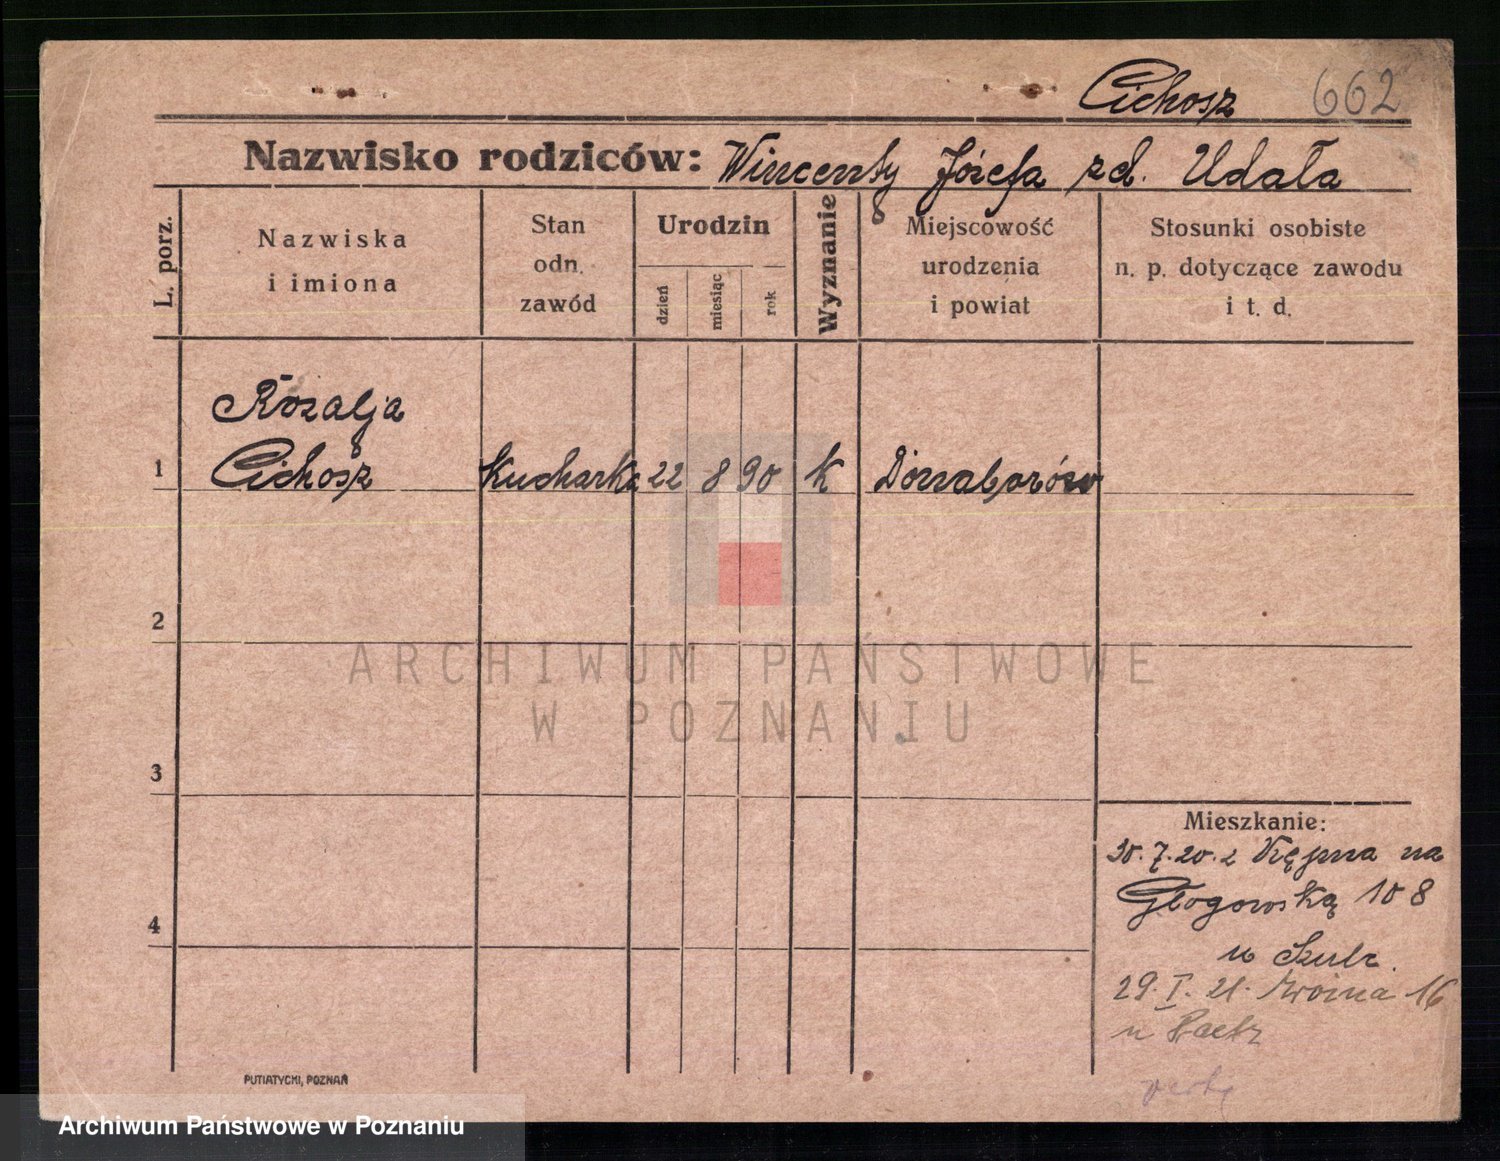 Cichosz 662
Nazwisko rodziców: Wincenty Józefa zd. Udała
L. porz.
Nazwiska
i imiona
Stan
odn.
zawód
Urodzin
dzień
miesiąc
rok
Wyznanie
Miejscowość
urodzenia
i powiat
Stosunki osobiste
n. p. dotyczące zawodu
i t. d.
Rozalja
1 Cichosz Kucharka 22 8 90 k Donaborów
2
ARCHIWUM PAŃSTWOWE
W POZNANIU
3
Mieszkanie:
30.7.20. z Kępna na
Głogowską 108
u Szulc.
4
29. I. 21. 16
u
PUTIATYCKI, POZNAŃ
Archiwum Państwowe w Poznaniu